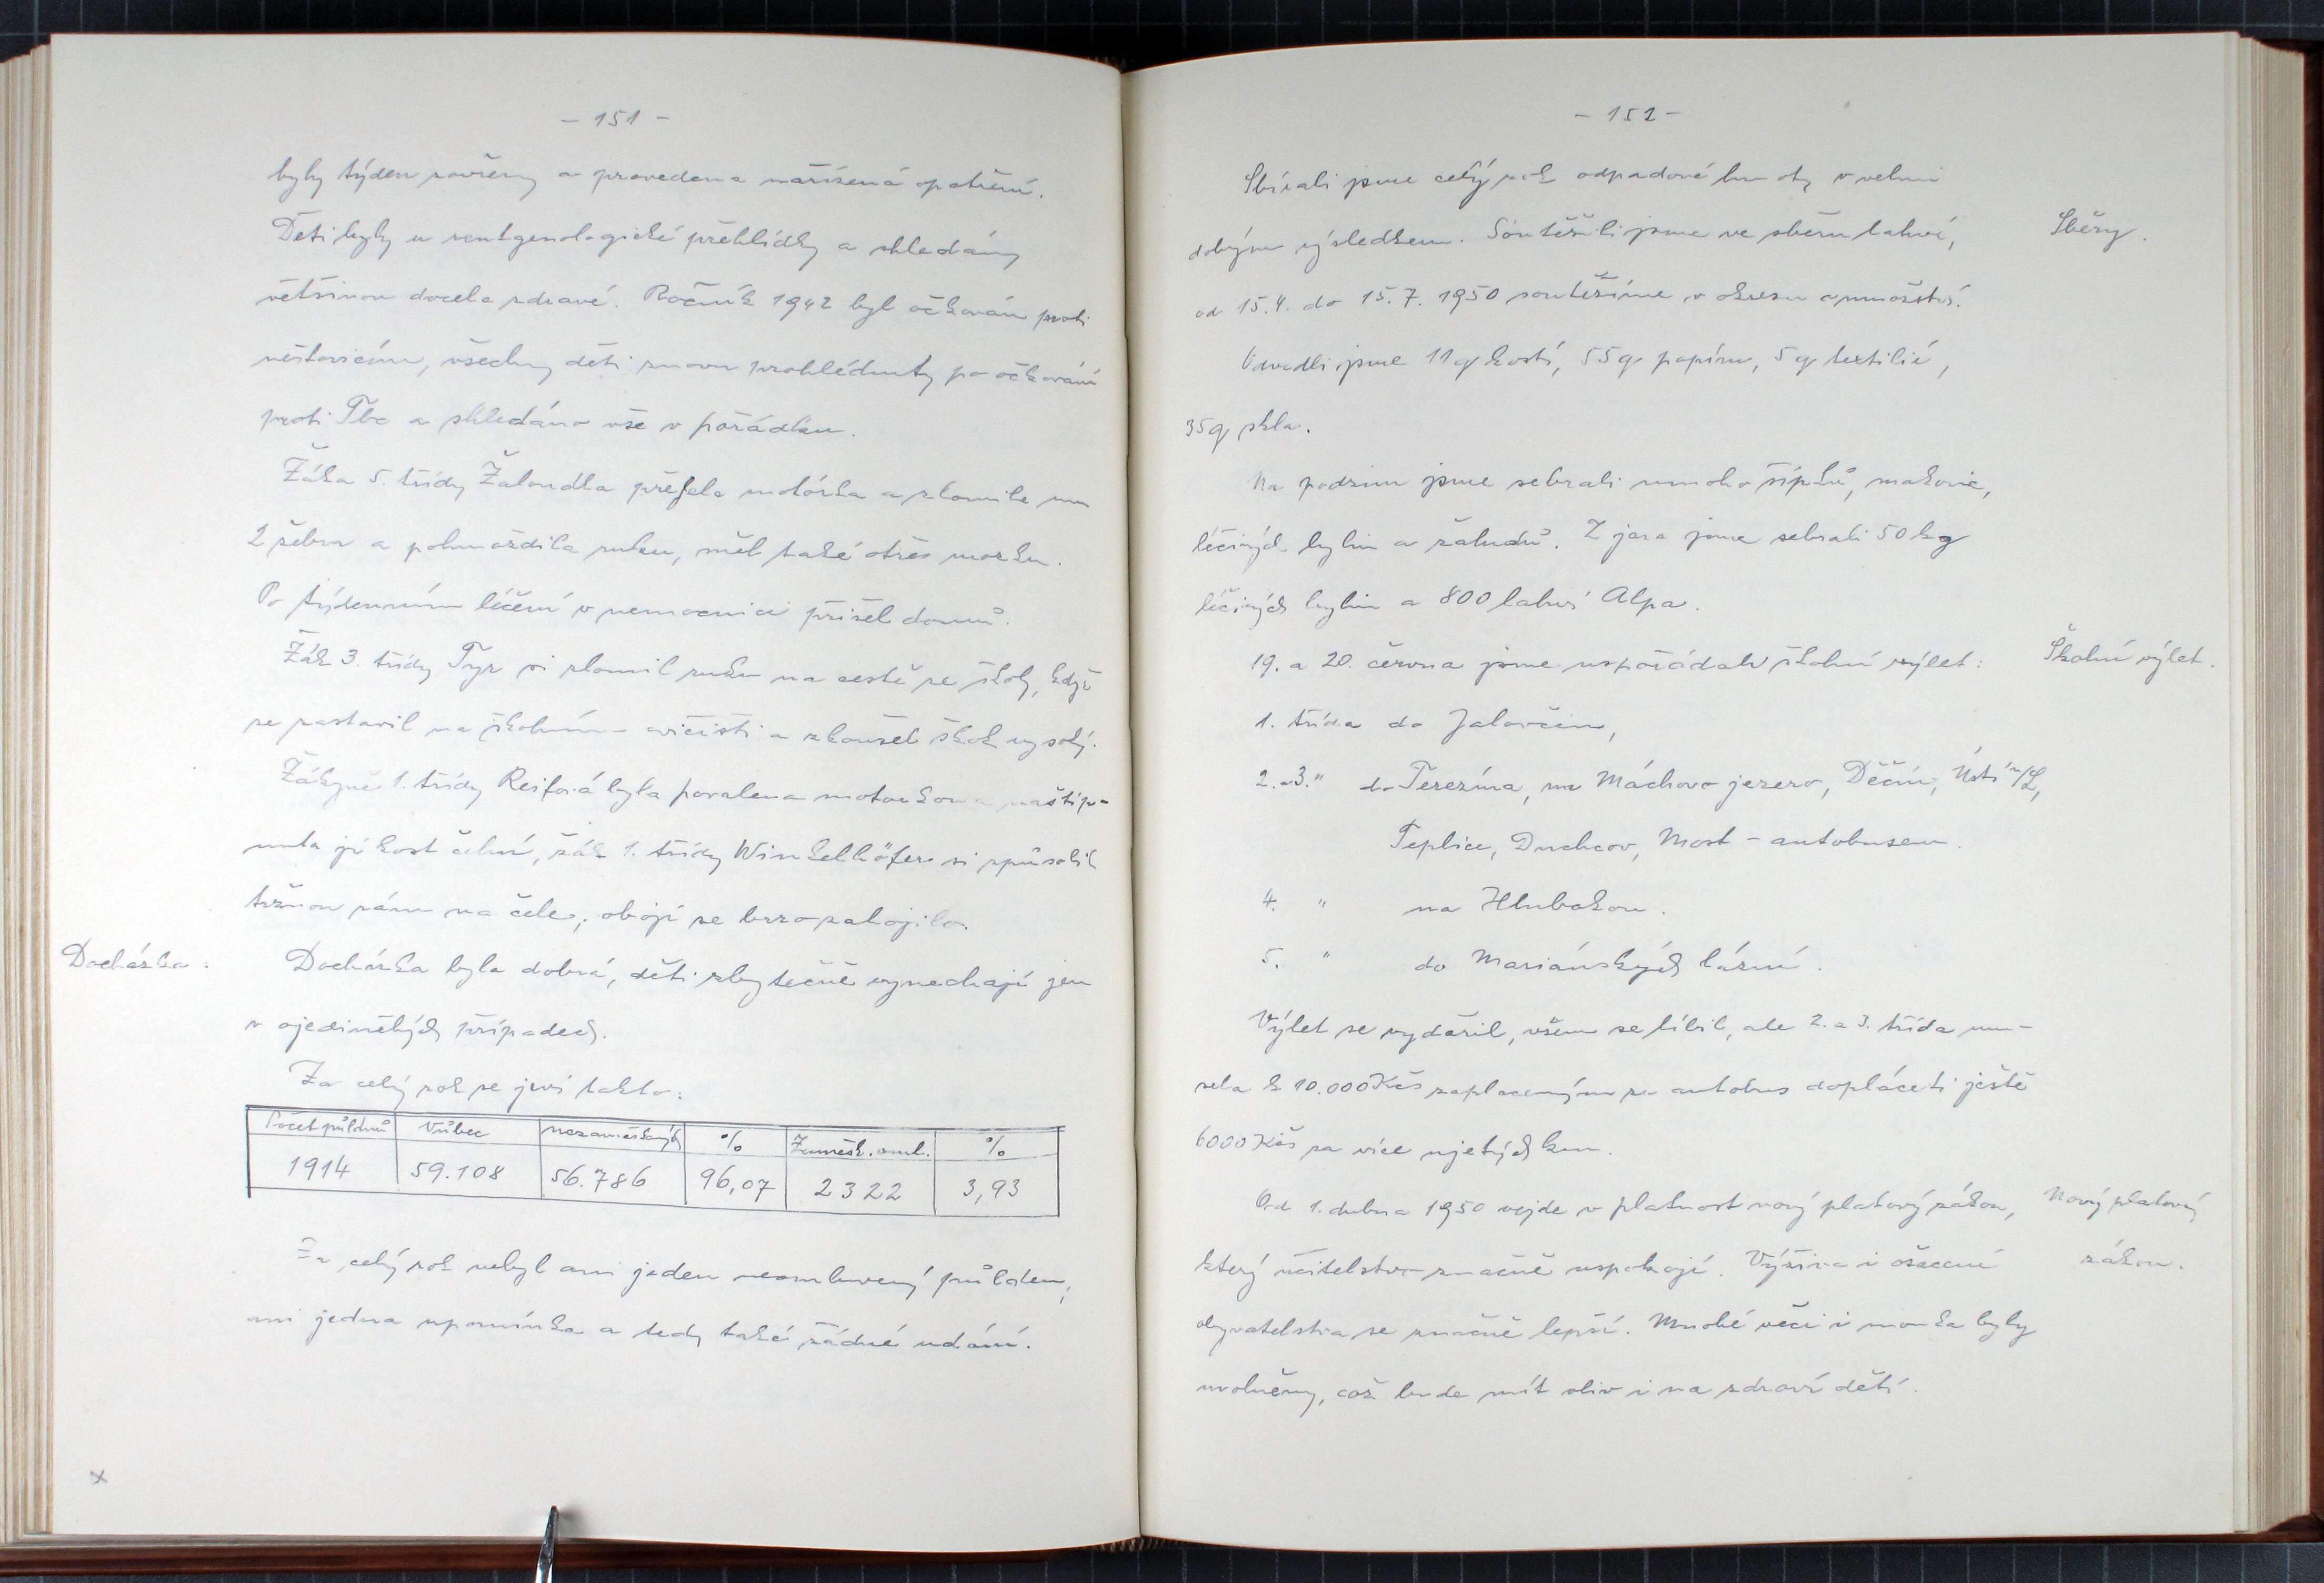 - 151 -
byly týden zavřeny a provedena nařízená opatření.
Děti byly u rentgenologické přehlídky a shledány
většinou docela zdravé. Ročník 1942 byl očkován proti
neštovicím, všechny děti znovu prohlédnuty po očkování
proti Tbc a shledáno vše v pořádku.
Žáka 5. třídy Žaloudka přejela motorka a zlomila mu
2 žebra a pohmoždila ruku, měl také otřes mozku.
Po týdenním léčení v nemocnici přišel domů.
Žák 3. třídy Tyr si zlomil ruku na cestě ze školy, když
se zastavil na školním cvičišti a zkoušel skok vysoký.
Žákyně 1. třídy Reifová byla povalena motorkou a naštíp-
nuta jí kost čelní, žák 1. třídy Winkelhöfer si způsobil
tržnou ránu na čele, obojí se brzo zahojilo.
Docházka:
Docházka byla dobrá, děti zbytečně vynechají jen
v ojedinělých případech.
Za celý rok se jeví takto:
Počet půldnů Vůbec nezameškaných % Zamešk. oml. %
1914 59.108 56.786 96,07 2322 3,93
Za celý rok nebyl ani jeden neomluvený půlden,
ani jedna upomínka a tedy také žádné udání.
x
- 152 -
Sbírali jsme celý rok odpadové hmoty s velmi
dobrým výsledkem. Soutěžili jsme ve sběru lahví,
Sběry.
od 15.4. do 15.7. 1950 soutěžíme v okresu o množství.
Odvedli jsme 11 q kostí, 55 q papíru, 5 q textilií,
35 q skla.
Na podzim jsme sebrali mnoho šípků, makovic,
léčivých bylin a žaludů. Z jara jsme sebrali 50 kg
léčivých bylin a 800 lahví Alpa.
19. a 20. června jsme uspořádali školní výlet:
Školní výlet.
1. třída do Jalovčin,
2. a 3. " do Terezína, na Máchovo jezero, Děčín, Ústí n/L,
Teplice, Duchcov, Most - autobusem.
4. " na Hlubokou.
5. " do Mariánských lázní.
Výlet se vydařil, všem se líbil, ale 2. a 3. třída mu-
sela k 10.000 Kčs zaplaceným za autobus dopláceti ještě
6000 Kčs za více ujetých km.
Od 1. dubna 1950 vejde v platnost nový platový zákon,
Nový platový
který učitelstvo značně uspokojí. Výživa i ošacení
zákon.
obyvatelstva se značně lepší. Mnohé věci i mouka byly
uvolněny, což bude mít vliv i na zdraví dětí.